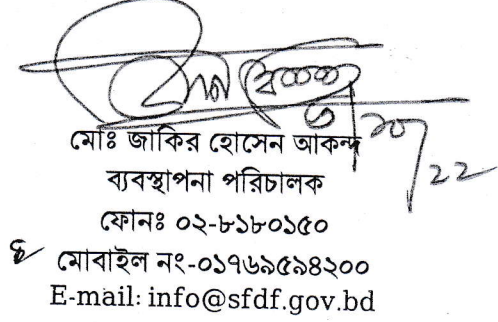 ৬/১০/22
মোঃ জাকির হোসেন আকন্দ
ব্যবস্থাপনা পরিচালক
ফোনঃ ০২-৮১৮০১৫০
মোবাইল নং-০১৭৬৯৫৯৪২০০
E-mail: info@sfdf.gov.bd